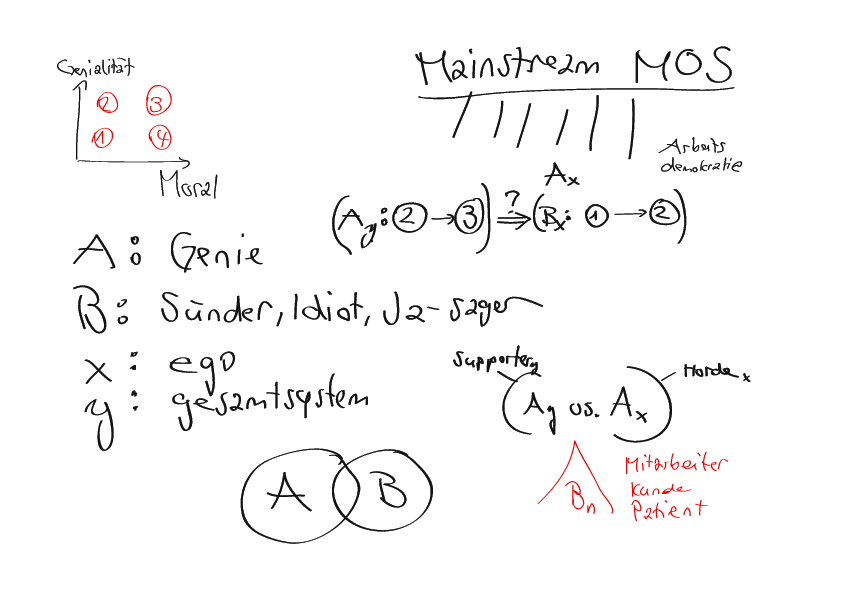 Genialität
2 3
1 4
Moral
Mainstream MOS
Arbeits
demokratie
Ax
(Ay: 2 → 3) ?⇒ (Bx: 1 → 2)
A: Genie
B: Sünder, Idiot, Ja-sager
x: ego
y: gesamtsystem
Supportery
Hordex
(Ay vs. Ax)
A B
Bn
Mitarbeiter
Kunde
Patient